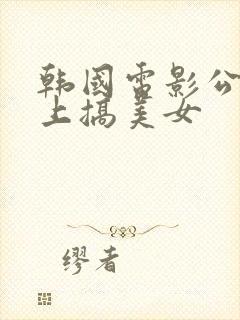 韩国电影公
上搞美女
缪者